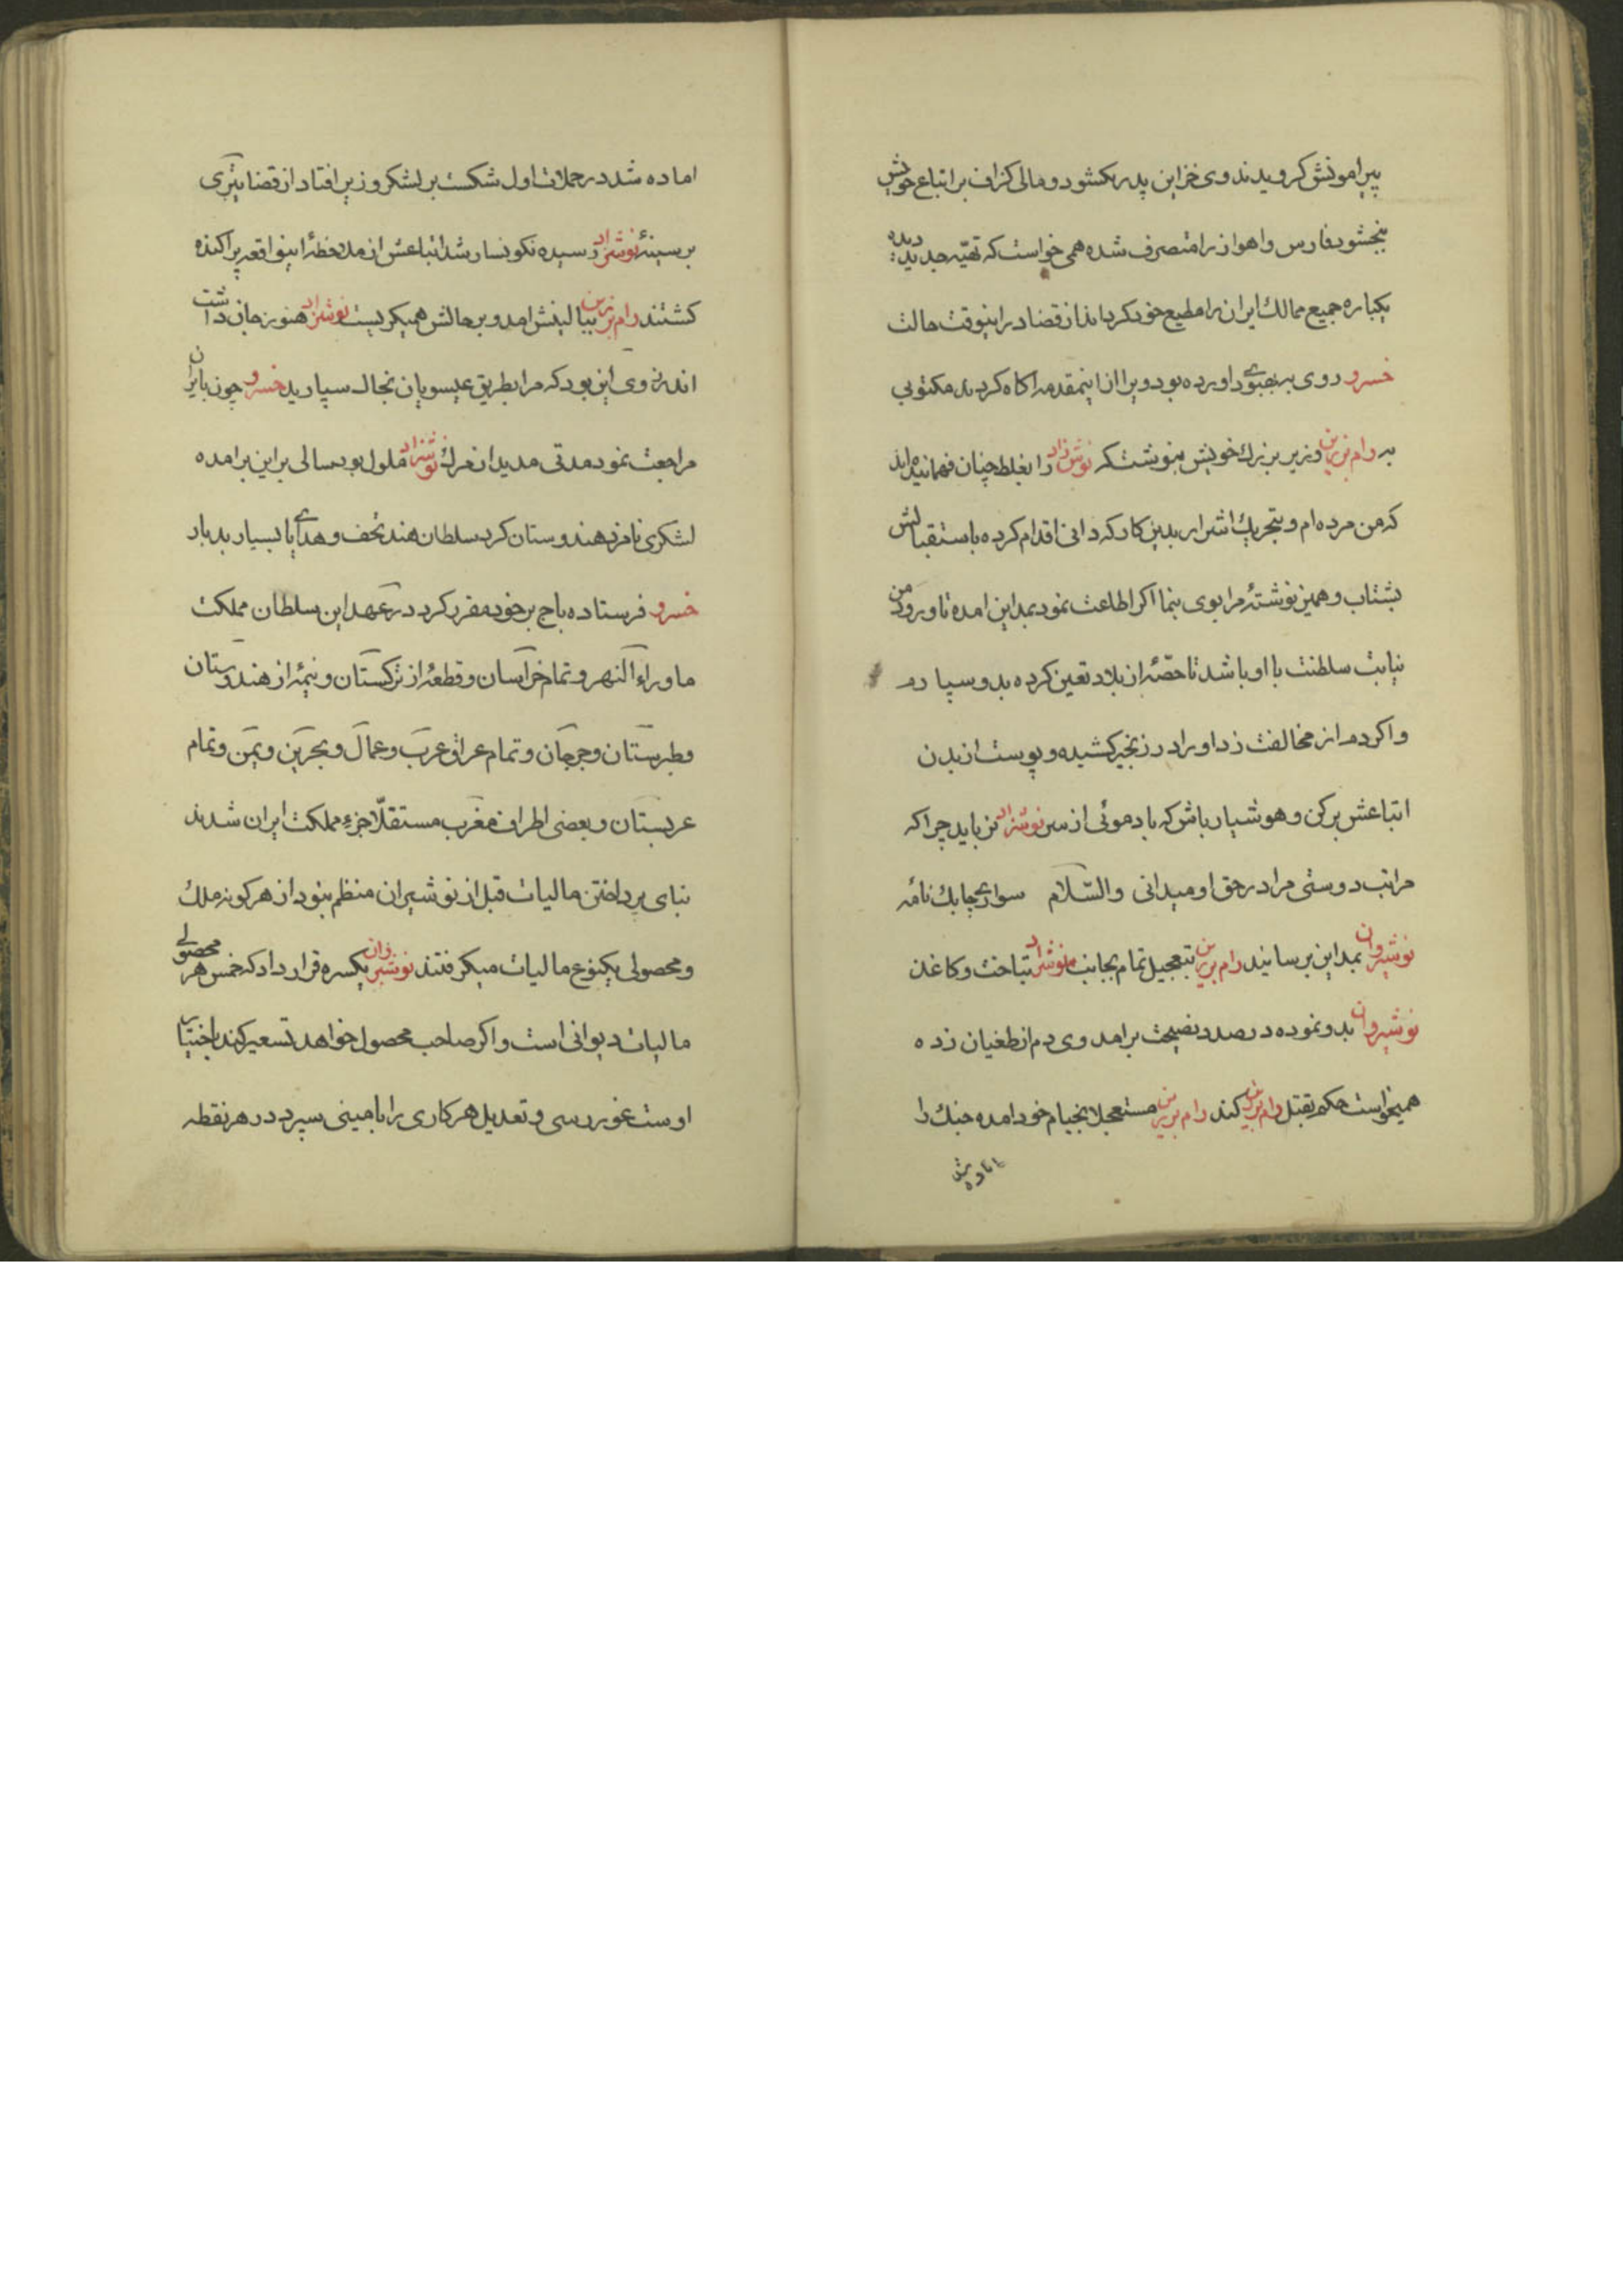 پیرامونش کرویدند وی خزاین پدر بکشود و مالی کزاف بر اتباع خویش
بخشود فارس و اهواز را متصرف شده همی خواست که تهیّه جدید دیده
یکباره جمیع ممالک ایران را مطیع خود کرداند از قضا در اینوقت حالت
خسرو روی به بهبودی اورده بود ویرا از اینمقدمه اکاه کردند مکتوبی
به رام برزین وزیر بزرك خویش بنوشت که نوش زاد را بغلط چنان فهمانیده‌اند
که من مرده ام و بتحریك اشرار بدین کار که دانی اقدام کرده باستقبالش
بشتاب و همین نوشتهٔ مرا بوی بنما اکر اطاعت نمود بمداین امده تا ورود من
نیابت سلطنت با او باشد تا حصّهٔ از بلاد تعین کرده بدو سپارم
و اکر دم از مخالفت زد او را در زنجیر کشیده و پوست از بدن
اتباعش برکن و هوشیار باش که باد موئی از سر نوشزاد نرباید چرا که
مراتب دوستی مرا در حق او میدانی والسّلام سواری چابك نامه
نوشیروان بمداین برسانید رام برزین بتعجیل تمام بجانب نوشزاد بتاخت و کاغذ
نوشیروان بدو نموده در صدد نصیحت برامد وی دم از طغیان زده
همیخواست حکم بقتل رام برزین کند رام برزین مستعجلا بخیام خود امده جنك را
اماده شد
اماده شد در حملات اول شکست بر لشکر وزیر افتاد از قضا تیری
بر سینهٔ نوشزاد رسیده نکونسار شد اتباعش از ملاحظهٔ اینواقعه پراکنده
کشتند رام برزین ببالینش امد و بر حالش همیکریست نوشزاد هنوز جان داشت
اندرز وی این بود که مرا بطریق عیسویان بخاك سپارید خسرو چون بایران
مراجعت نمود مدتی مدید از مرك نوشزاد ملول بود سالی براین برامده
لشکری نامزد هندوستان کرد سلطان هند تحف و هدایا بسیار بدربار
خسرو فرستاده باج بر خود مقرر کرد در عهد این سلطان مملکت
ماوراء النهر و تمام خراسان و قطعهٔ از ترکستان و نیمهٔ از هندوستان
و طبرستان و جرجان و تمام عراق عرب و عمال و بحرین و یمن و تمام
عربستان و بعضی اطراف مغرب مستقلّا جزء مملکت ایران شدند
بنای پرداختن مالیات قبل از نوشیران منظم نبود از هرکونه ملك
و محصولی یکنوع مالیات میکرفتند نوشیروان یکسره قرار داد که خمس هر محصولی
مالیات دیوانی است و اکر صاحب محصول خواهد تسعیر کند باختیار
اوست غوررسی و تعدیل هر کاری را بامینی سپرد در هر نقطه